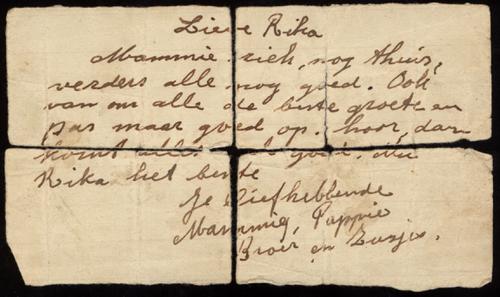 Lieve Rika
Mammie ziek, nog thuis,
verders alle nog goed. Ook
van ons alle de beste groete en
pas maar goed op. hoor, dan
komt alles goed. Nu
Rika het beste
Je liefhebbende
Mammie, Pappie
Broer en Zusje.